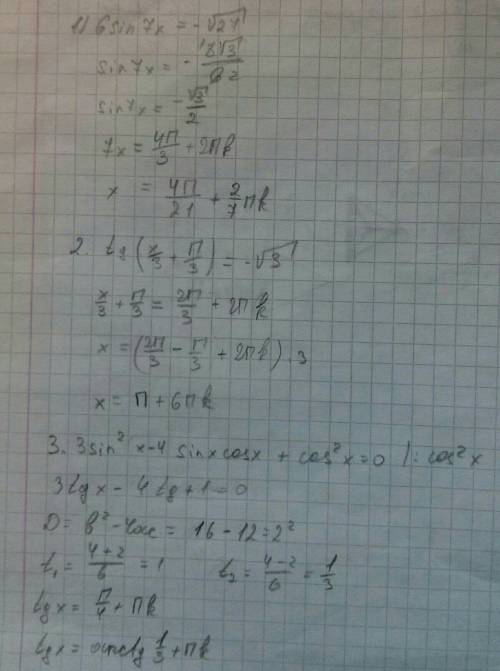 1) 6 sin 7x = -√27
sin 7x = - 3√3/6 2
sin 7x = -√3/2
7x = 4π/3 + 2πk
x = 4π/21 + 2/7 πk
2. tg (x/3 + π/3) = -√3
x/3 + π/3 = 2π/3 + 2πk
x = (2π/3 - π/3 + 2πk) · 3
x = π + 6πk
3. 3sin² x - 4 sinx cosx + cos² x = 0 |: cos² x
3tgx - 4tg + 1 = 0
D = b² - 4ac = 16 - 12 = 2²
t₁ = 4+2/6 = 1 t₂ = 4-2/6 = 1/3
tgx = π/4 + πk
tgx = arctg 1/3 + πk